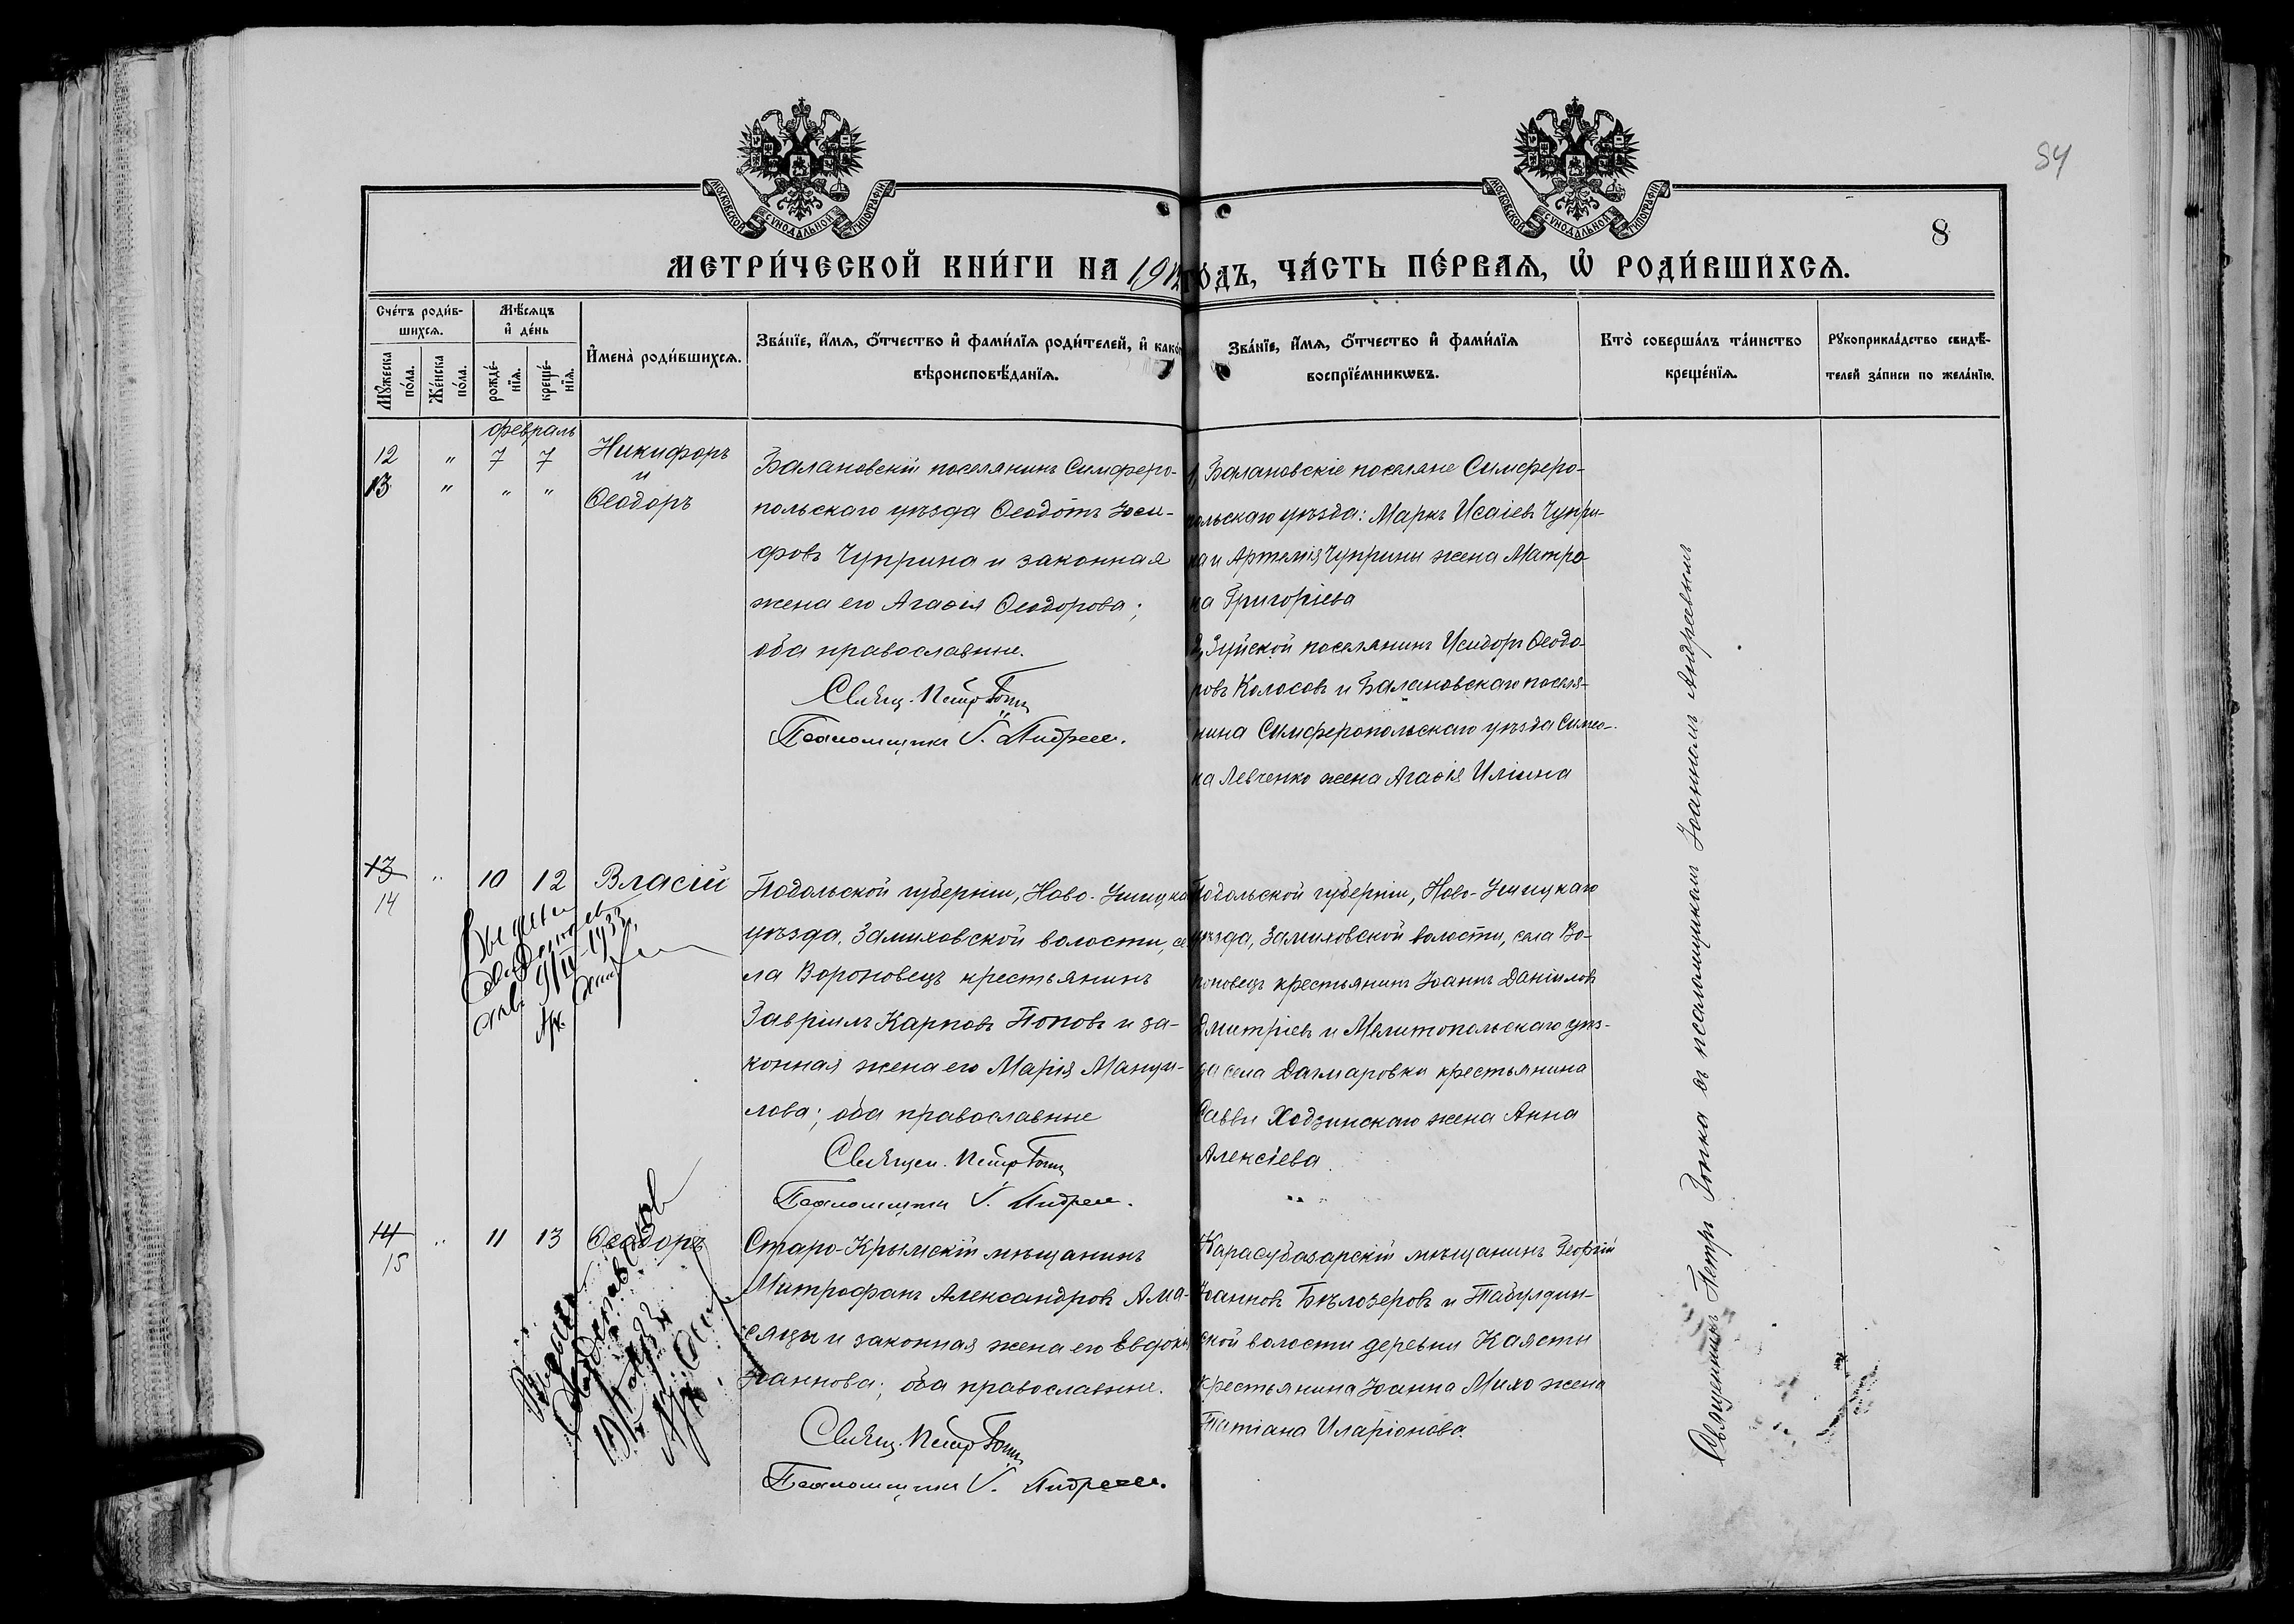 84
8
МОСКОВСКОЙ СУНОДАЛЬНОЙ ТИПОГРАФІИ
МОСКОВСКОЙ СУНОДАЛЬНОЙ ТИПОГРАФІИ
МЕТРИ́ЧЕСКОЙ КНИ́ГИ НА 1912 ГО́ДЪ, ЧА́СТЬ ПЕ́РВАѦ, Ѡ҆ РОДИ́ВШИХСѦ.
Сче́тъ роди́в-
шихсѧ.
Мѹ́жеска по́ла.
Же́нска по́ла.
Мѣ́сѧцъ
и҆ де́нь
рожде́-
нїѧ.
креще́-
нїѧ.
И҆мена̀ роди́вшихсѧ.
Зва́нїе, и҆́мѧ, ѻ҆́тчество и҆ фами́лїѧ роди́телей, и҆ како́
вѣроисповѣ́данїѧ.
Зва́нїе, и҆́мѧ, ѻ҆́тчество и҆ фами́лїѧ
воспрїе́мникѡвъ.
Кто̀ соверша́лъ та́инство
креще́нїѧ.
Рѹкоприкла́дство свидѣ́-
телей за́писи по жела́нїю.
февраль
12 " 7 7 Никифоръ
и
13 " " " Ѳеодоръ
Балановскій поселянинъ Симферо-
польскаго уѣзда Ѳеодотъ Іоси-
фовъ Чуприна и законная
жена его Агаѳія Ѳеодорова;
оба православные.
Свящ. Петръ Гонка
Псаломщикъ І. Андреевъ.
1, Балановскіе поселяне Симферо-
польскаго уѣзда: Маркъ Исаіевъ Чупри-
на и Артемія Чуприны жена Матро-
на Григоріева
2, Зуйской поселянинъ Исидоръ Ѳеодо-
ровъ Колосовъ и Балановскаго поселя-
нина Симферопольскаго уѣзда Симео-
на Левченко жена Агаѳія Иліина
13 " 10 12 Власій
14
Подольской губерніи, Ново-Ушицка
уѣзда, Замиховской волости, се
ла Вороновецъ крестьянинъ
Гавріилъ Карповъ Поповъ и за-
конная жена его Марія Мануи-
лова; оба православные
Священ. Петръ Гонка
Псаломщикъ І. Андреевъ.
Подольской губерніи, Ново-Ушицкаго
уѣзда, Замиховской волости, села Во-
роновецъ крестьянинъ Іоаннъ Даніиловъ
Дмитріевъ и Мелитопольскаго уѣз-
да села Дагмаровки крестьянина
Саввы Ходзинскаго жена Анна
Алексіева
9/IV-1933
14 " 11 13 Ѳеодоръ
15
Старо-Крымскій мѣщанинъ
Митрофанъ Александровъ Ама-
сяцы и законная жена его Евдокія
Іоаннова; оба православные.
Свящ. Петръ Гонка
Псаломщикъ І. Андреевъ.
Карасубазарскій мѣщанинъ Георгій
Іоанновъ Бѣлозеровъ и Табулдин-
ской волости деревни Каясты
крестьянина Іоанна Михо жена
Татіана Иларіонова.
Священникъ Петръ Гонка съ псаломщикомъ Іоанномъ Андреевымъ